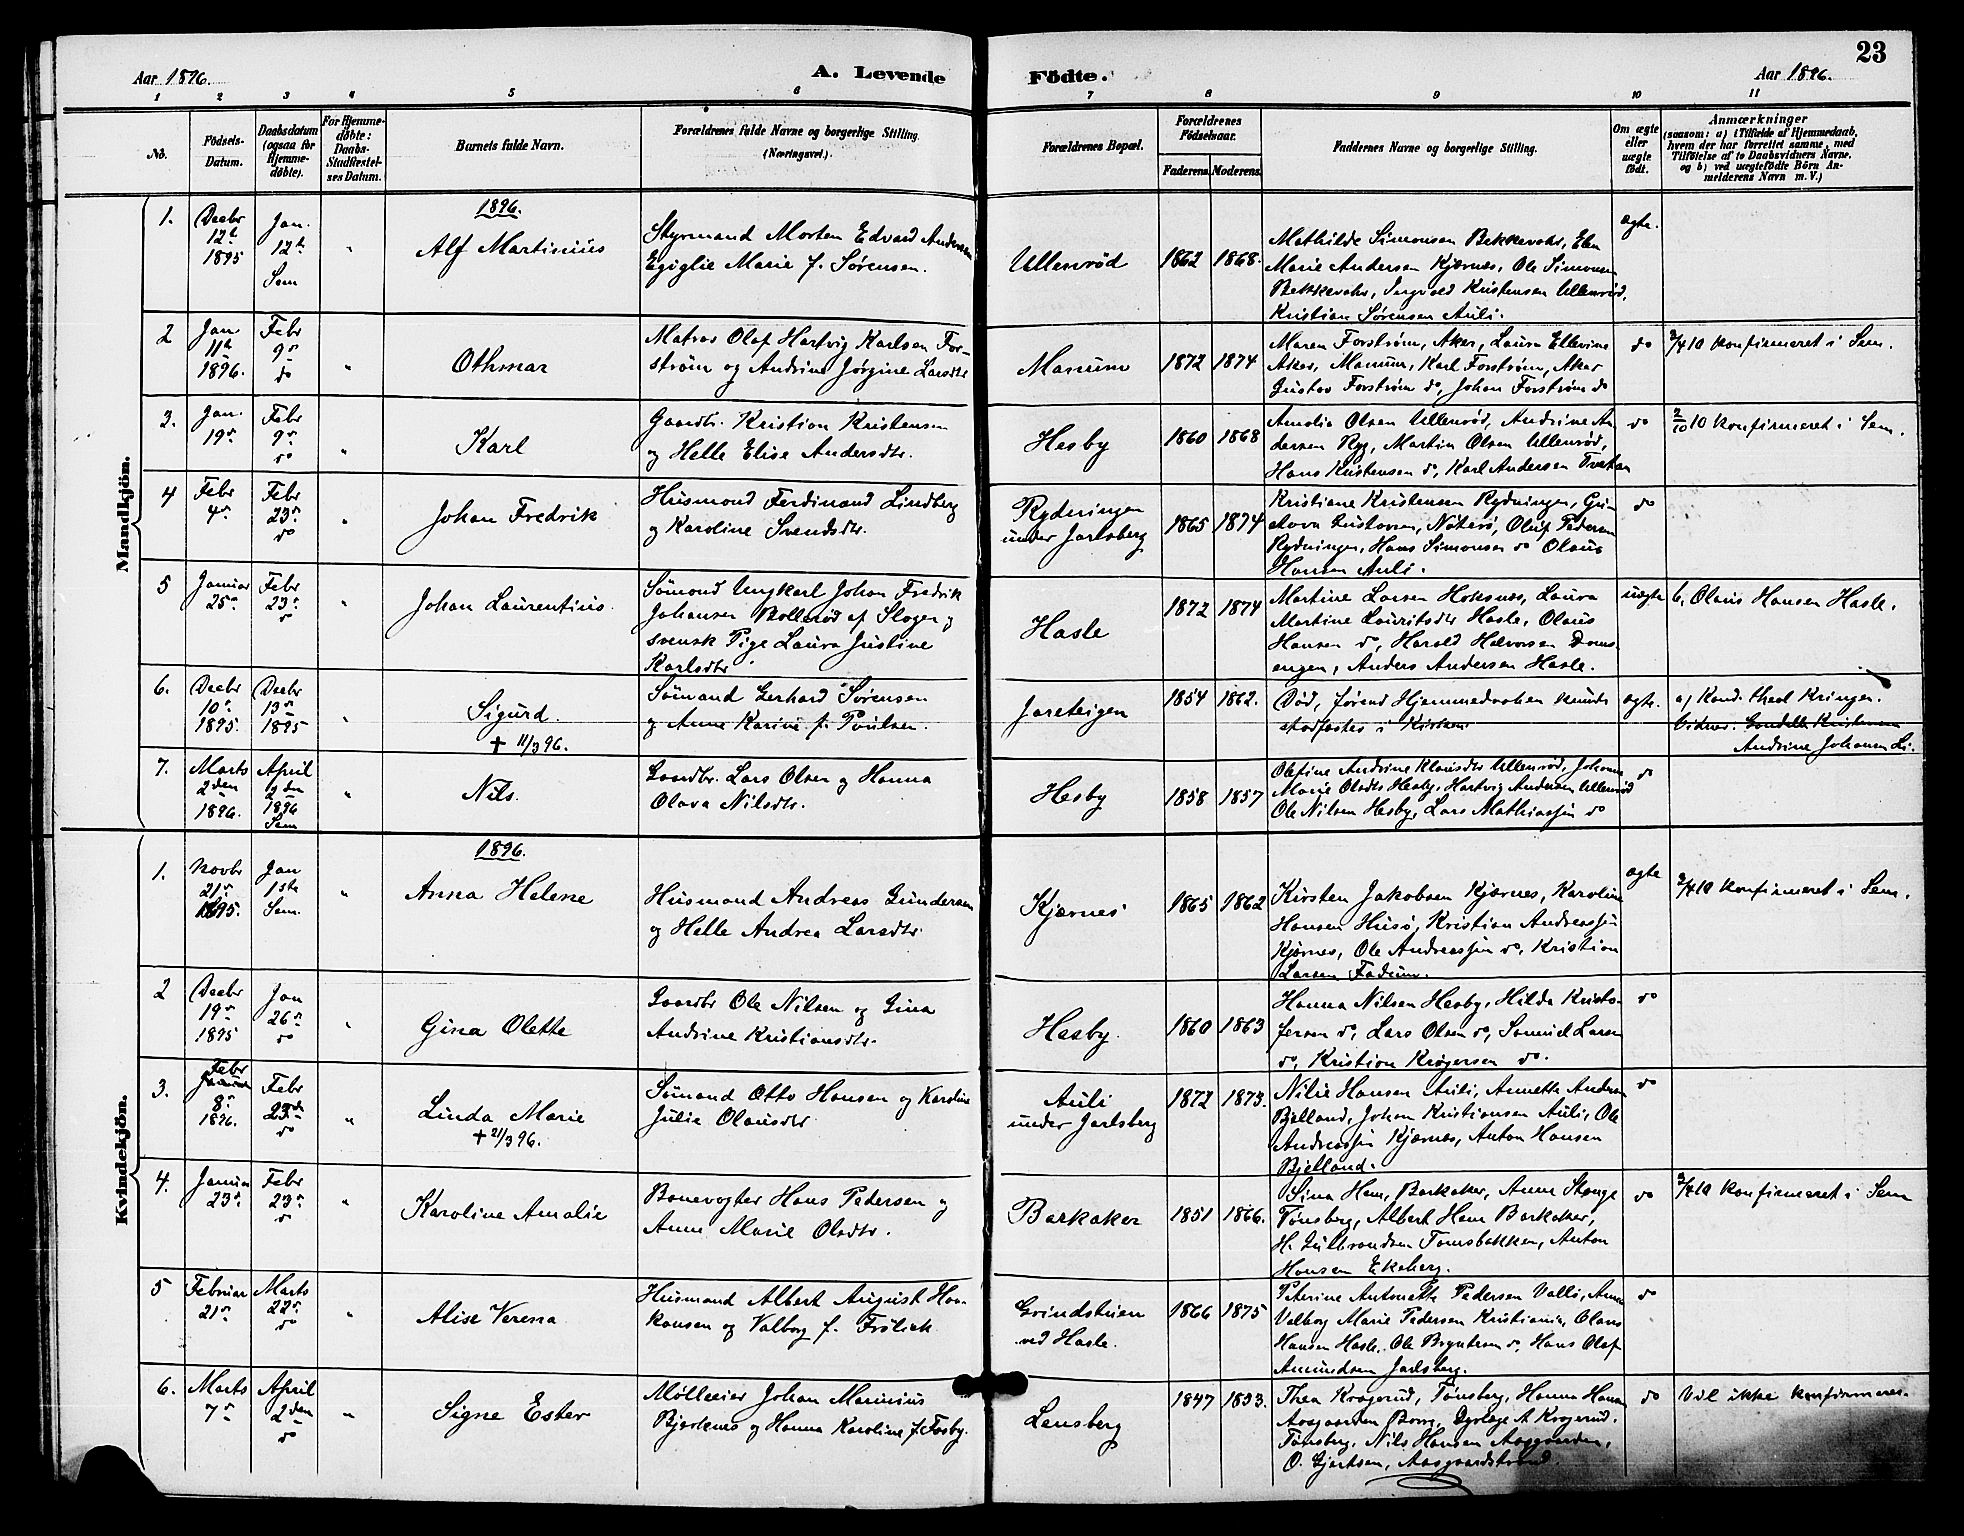 Aar 1896. A. Levende Födte. Aar 1896. 23
1 2 3 4 5 6 7 8 9 10 11
No. Fødsels-Datum. Daabsdatum (ogsaa for Hjemmedøbte). For Hjemmedøbte: Daabs-Stadfæstelses Datum. Barnets fulde Navn. Forældrenes fulde Navne og borgerlige Stilling. (Næringsvei.) Forældrenes Bopæl. Forældrenes Födselsaar. Faderens. Moderens. Faddernes Navne og borgerlige Stilling. Om ægte eller uægte födt. Anmærkninger (saasom: a) i Tilfælde af Hjemmedaab, hvem der har forrettet samme, med Tilföielse af to Daabsvidners Navne, og b) ved uægtefödte Börn Anmelderens Navn m. V.)
Mandkjön.
1896.
1. Decbr 12te 1895 Jan. 12te Sem " Alf Martinius
Styrmand Morten Edvard Andersen
Egiglie Marie f. Sørensen.
Ullenrød 1862 1868.
Mathilde Simonsen Bekkevahr, Elen
Marie Andersen Kjærnes, Ole Simonsen
Bekkevahr, Ingvald Kristensen Ullenrød,
Kristian Sørensen Auli.
ægte.
2 Jan. 11te 1896. Febr 9de do " Othmar
Matros Olaf Hartvig Karlsen For-
strøm og Andrine Jørgine Larsdtr
Manum 1872 1874
Maren Forstrøm, Aker, Laura Ellevine
Aker, Manum, Karl Forstrøm, Aker
Gustav Forstrøm do, Johan Forstrøm do
do 2/4 10 konfirmeret i Sem.
3. Jan. 19de Febr 9de do " Karl
Gaardbr. Kristian Kristensen
og Helle Elise Andersdtr.
Hesby 1860 1868
Amalia Olsen Ullenrød, Andrine An
dersen Ryg, Martin Olsen Ullenrød,
Hans Kristensen do, Karl Andersen Tvetan
do 2/10 10 konfirmeret i Sem.
4 Febr 4de Febr 23de do " Johan Fredrik
Husmand Ferdinand Lindberg
og Karoline Svendsdtr.
Rydningen
under Jarlsberg 1865 1874
Kristiane Kristensen Rydningen, Gu-
stava Gustavsen, Nøterø, Oluf Pedersen
Rydningen, Hans Simonsen do Olaus
Hansen Auli.
do
5 Januar 25de Febr 23de do " Johan Laurentius.
Sømand Ungkarl Johan Fredrik
Johansen Bollerød af Slagen og
svensk Pige Laura Justine
Karlsdtr.
Hasle 1872 1874
Martine Larsen Hoksnæs, Laura
Martine Lauritsdtr Hasle, Olaus
Hansen do, Harald Halvorsen
Anders Andersen Hasle.
uægte b. Olaus Hansen Hasle.
6. Decbr 10de 1895. Decbr 13de 1895 " Sigurd.
+ 11/3 96.
Sømand Gerhard Sørensen
og Anne Karine f. Poulsen.
Jareteigen 1854 1862.
Død, førend Hjemmedaaben kunde
stadfæstes i Kirken.
ægte. a) Kand. theol Kringen.
Vidner. Gundelle Kristensen
Andrine Johansen Li.
7. Marts 2den 1896. April 2den 1896 Sem " Nils.
Gaardbr. Lars Olsen og Hanna
Olava Nilsdtr.
Hesby 1858 1857
Olefine Andrine Klausdtr Ullenrød, Johanne
Marie Olsdtr Hesby, Hartvig Andersen Ullenrød
Ole Nilsen Hesby, Lars Mathiassen do
do
Kvindekjön.
1896.
1. Novbr 21de 1895. Jan 1ste Sem. " Anna Helene
Husmand Andreas Gundersen
og Helle Andrea Larsdtr.
Kjærnes 1865 1862
Kirsten Jakobsen Kjærnes, Karoline
Hansen Husø, Kristian Andreassen
Kjærnes, Ole Andreassen do, Kristian
Larsen Fadum.
ægte 2/4 10 konfirmeret i Sem.
2 Decbr 19de 1895 Jan 26de do " Gina Olette
Gaardbr Ole Nilsen og Gina
Andrine Kristiansdtr.
Hesby. 1860 1863
Hanna Nilsen Hesby, Hilda Kristo-
fersen do, Lars Olsen do, Samuel Larsen
do, Kristian Krøgersen do.
do
3. Febr 8de 1896. Febr 23de do " Linda Marie
+ 21/3 96.
Sømand Otto Hansen og Karoline
Julie Olausdtr
Auli
under Jarlsberg 1872 1873.
Nilie Hansen Auli, Annette Andersen
Bjelland, Johan Kristiansen Auli, Ole
Andreassen Kjærnes, Anton Hansen
Bjelland.
do
4. Januar 23de Febr 23de do " Karoline Amalie
Banevogter Hans Pedersen og
Anne Marie Olsdtr.
Barkaker 1851 1866.
Sina Hem, Barkaker, Anne Stange
Tønsberg, Albert Hem Barkaker,
H. Gulbrandsen Tomsbakken, Anton
Hansen Ekeberg.
do 2/4 10 konfirmeret i Sem
5 Februar 21de Marts 22de do " Alise Verena
Husmand Albert August Haa-
konsen og Valborg f. Frölick
Grindstuen
ved Hasle. 1866 1875
Peterine Antonette Pedersen Valli, Anna
Valborg Marie Pedersen Kristiania, Olaus
Hansen Hasle, Ole Bryntesen do, Hans Olaf
Amundsen Jarlsberg.
do
6. Marts 7de April 2den do " Signe Ester
Mølleeier Johan Marinius
Bjertnæs og Hanna Karoline f. Fosby.
Lensberg 1847 1853.
Thea Krogerud, Tønsberg, Hanna Hansen
Aasgaarden Borre, A Krogerud.
Tønsberg, Nils Hansen Aasgaarden,
O. Gjertsen, Aasgaardstrand.
do Vil ikke konfirmeres.